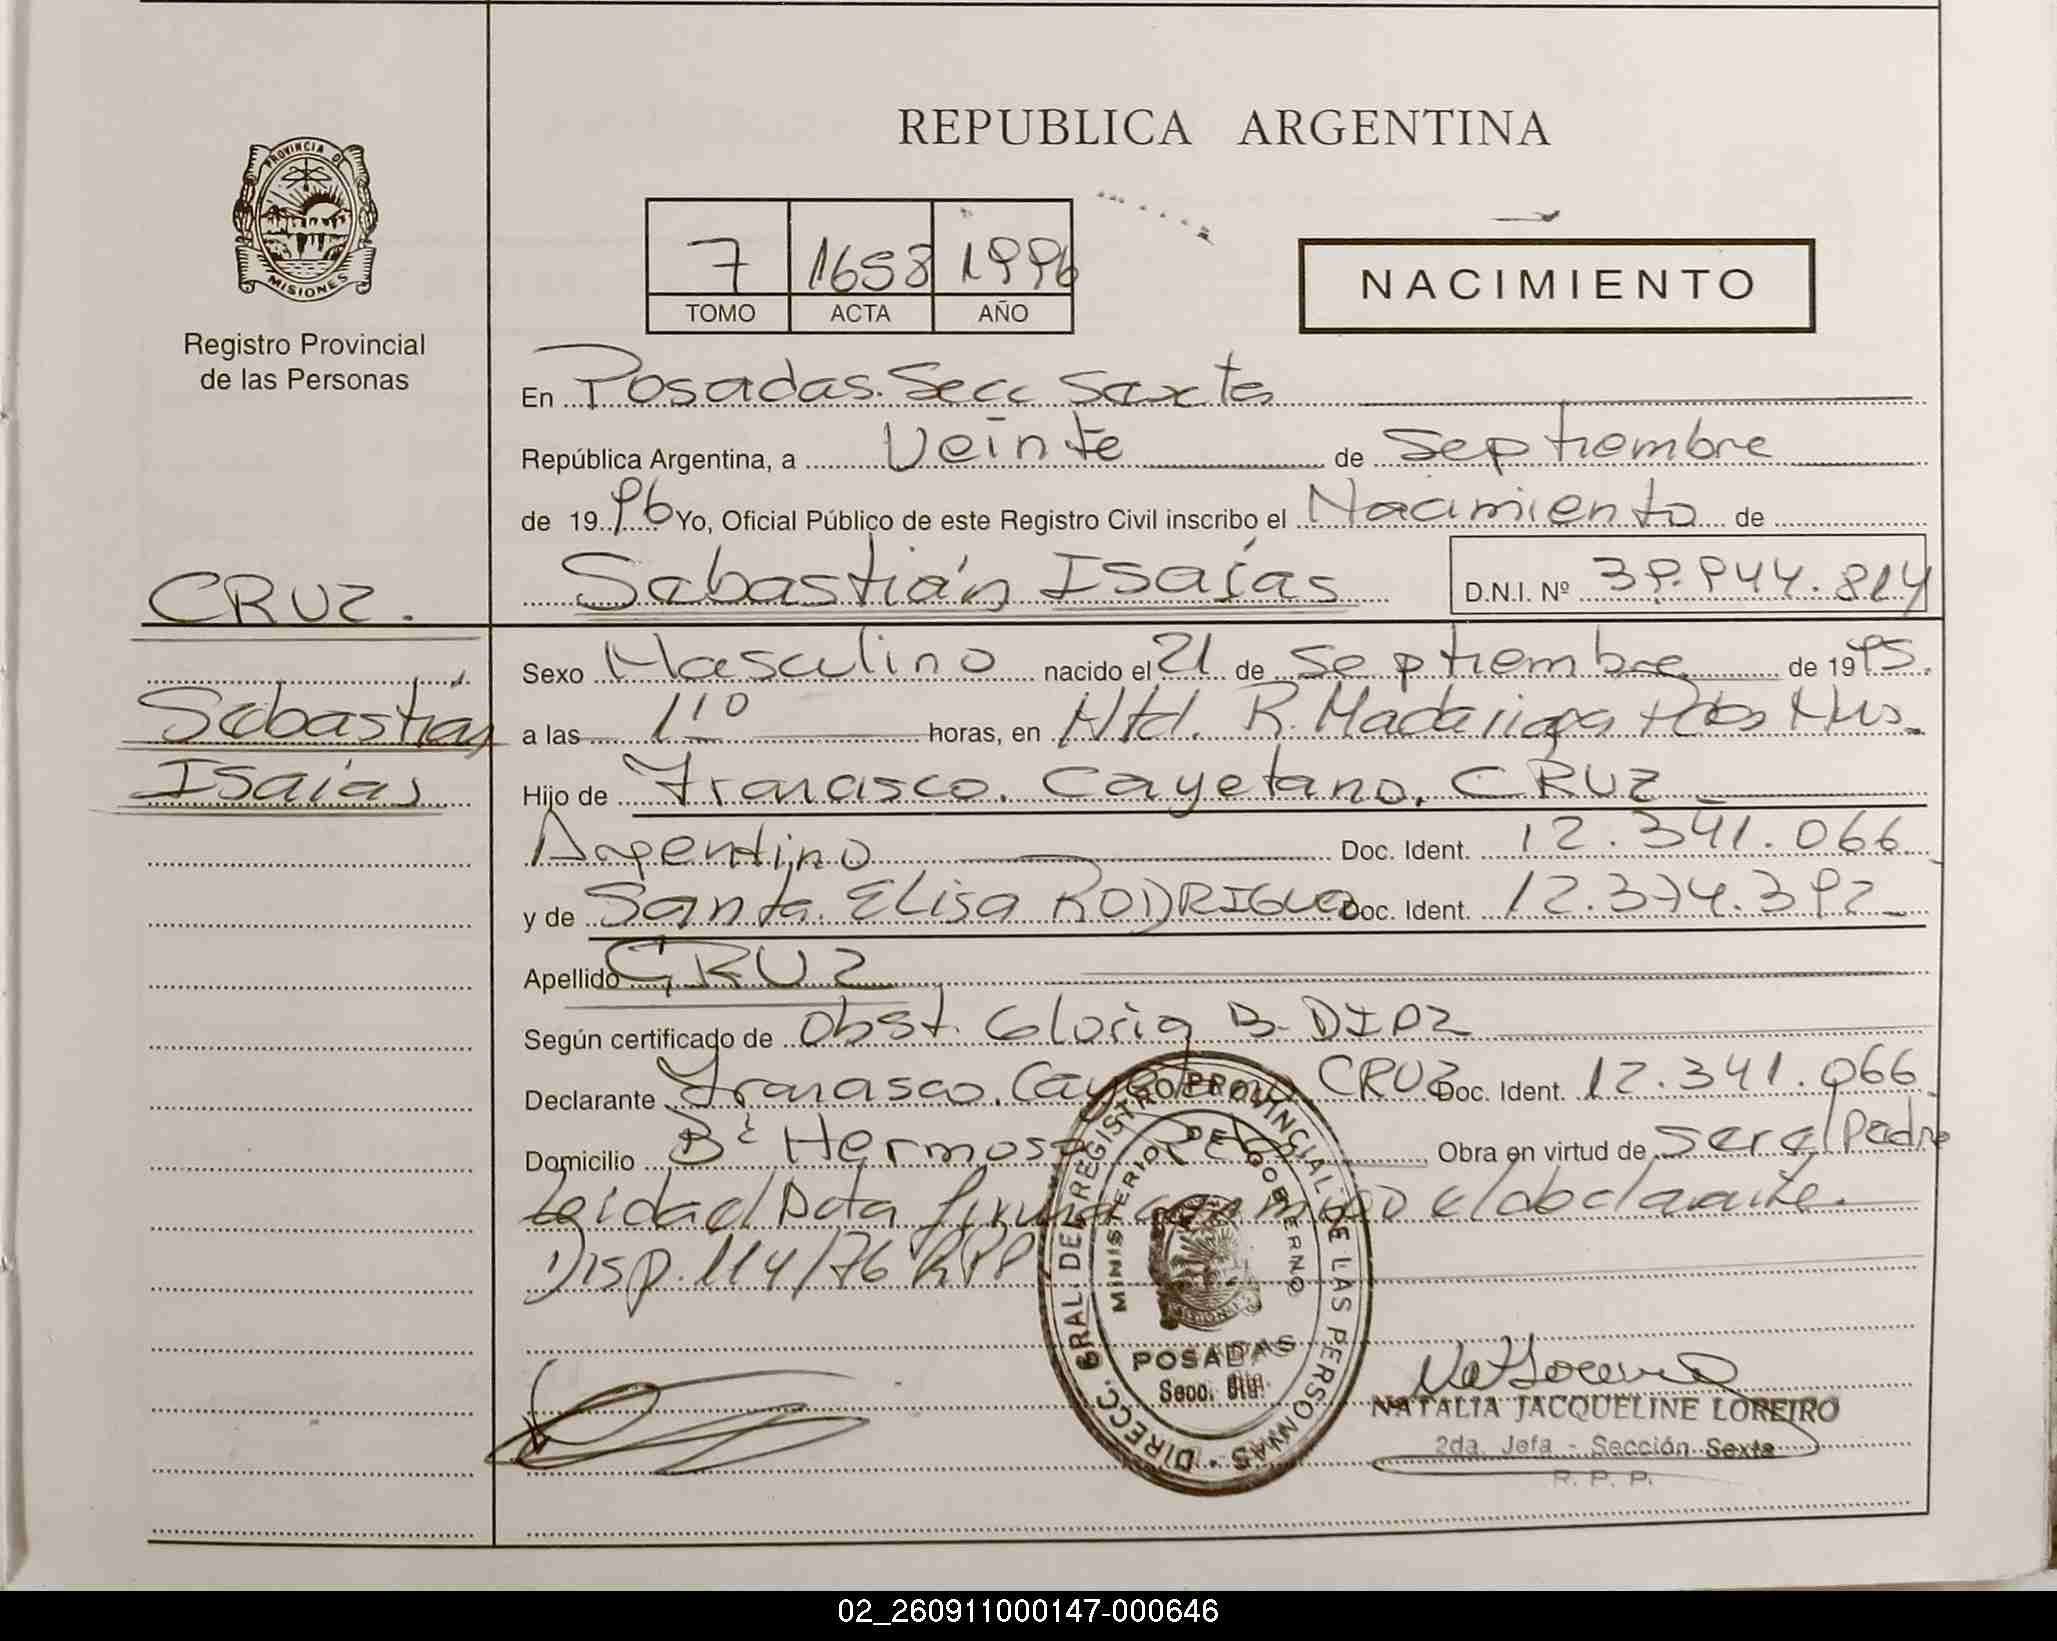 REPUBLICA ARGENTINA
PROVINCIA DE
MISIONES
Registro Provincial
de las Personas
7 1658 1996
TOMO ACTA AÑO
NACIMIENTO
En Posadas. Secc Sexta
República Argentina, a Veinte de Septiembre
de 1996 Yo, Oficial Público de este Registro Civil inscribo el Nacimiento de
Sebastián Isaías D.N.I. Nº 39.944.814
CRUZ.
Sebastián
Isaías
Sexo Masculino nacido el 21 de Septiembre de 1995.
a las 110 horas, en Htal. R. Madariaga Pdas Mns.
Hijo de Francisco. Cayetano. CRUZ
Argentino Doc. Ident. 12.341.066
y de Santa. Elisa RODRIGUEZ Doc. Ident. 12.374.392
Apellido CRUZ
Según certificado de Obst. Gloria B. DIAZ
Declarante Francisco. Cayetano CRUZ Doc. Ident. 12.341.066
Domicilio Bº Hermosa Obra en virtud de ser el Padre
Leida el Acta firma conmigo el declarante.
Disp. 114/76 RPP
DIRECC. GRAL. DEL REGISTRO PROVINCIAL DE LAS PERSONAS
MINISTERIO DE GOBIERNO
POSADAS
Secc. 6ta.
NATALIA JACQUELINE LOREIRO
2da. Jefa - Sección Sexta
R. P. P.
02_260911000147-000646